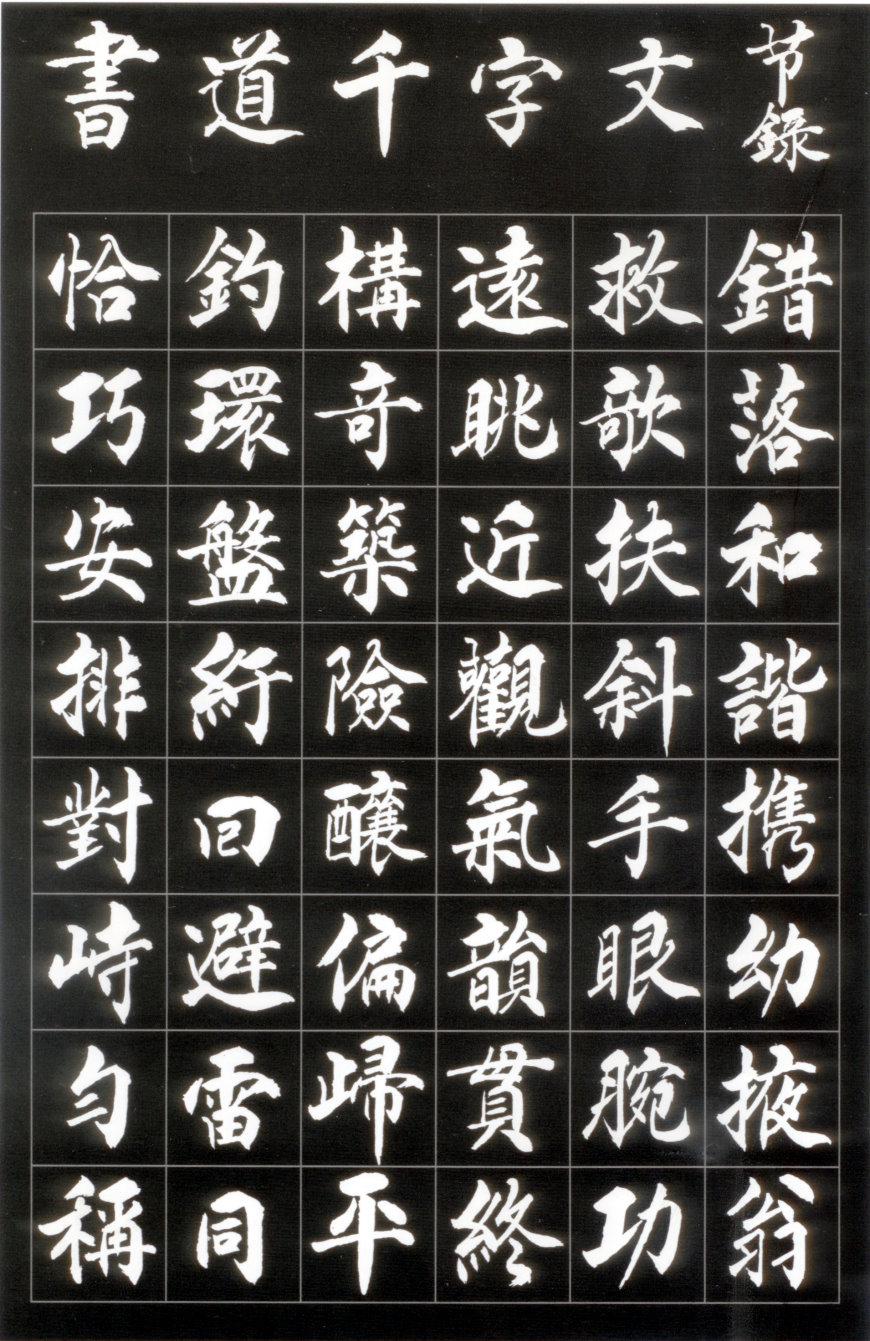 書道千字文
节録
恰巧安排對峙勻稱
鈎環盤紆回避雷同
構奇築險釀偏歸平
遠眺近觀氣韻貫終
救欹扶斜手眼腕功
錯落和諧携幼掖翁